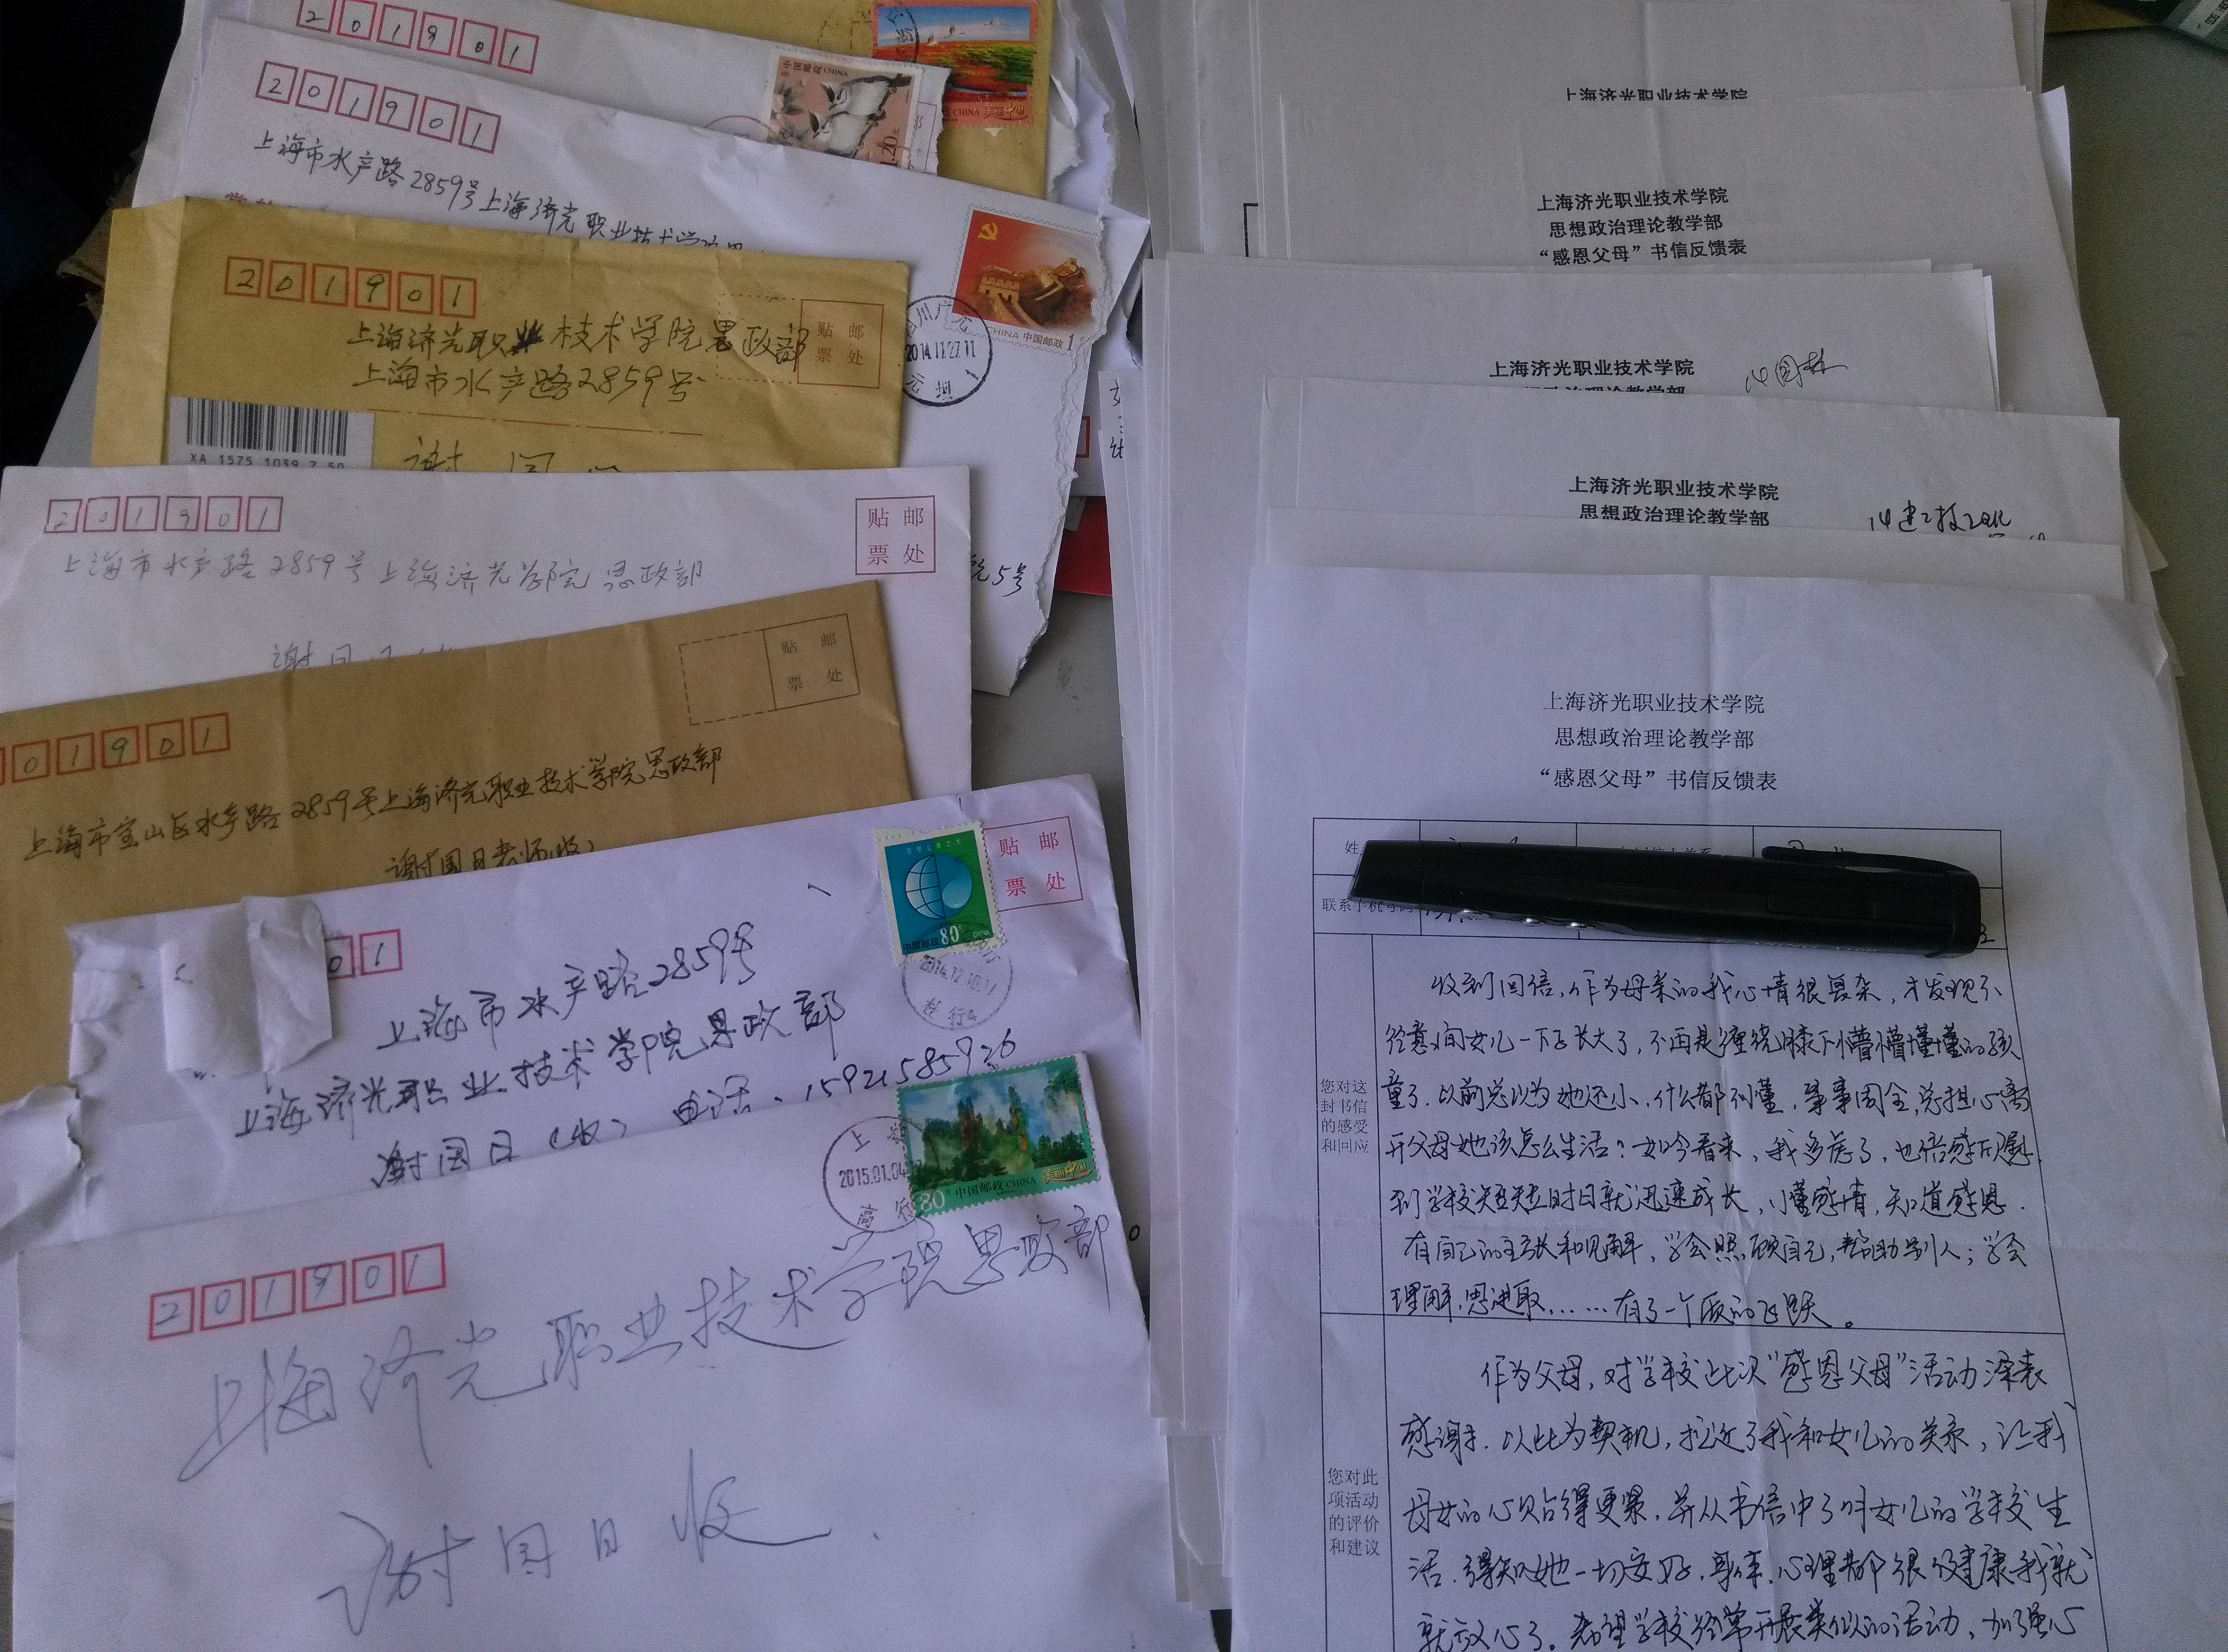 201901
中国邮政 CHINA
1.20元
201901
上海市水产路2859号上海济光职业技术学院思
CHINA 中国邮政 1
2014.11.27.11
元坝
201901
上海济光职业技术学院思政部
上海市水产路2859号
贴邮
票处
XA 1575 1039 7 50
谢国
201901
贴邮
票处
上海市水产路2859号上海济光学院思政部
5号
谢国日
贴邮
票处
01901
上海市宝山区水产路2859号上海济光职业技术学院思政部
谢国日老师(收)
贴邮
票处
中国邮政 80分 CHINA
01
上海市水产路2859号
上海济光职业技术学院思政部
谢国日(收) 电话:15921585926
上海
2015.01.04
高行
80分 中国邮政 CHINA 美丽中国
201901
上海济光职业技术学院思政部。
谢国日 收.
上海济光职业技术学院
上海济光职业技术学院
思想政治理论教学部
“感恩父母”书信反馈表
上海济光职业技术学院
思想政治理论教学部
14园林
上海济光职业技术学院
思想政治理论教学部
上海济光职业技术学院
思想政治理论教学部
“感恩父母”书信反馈表
姓
联系手机号码
您对这
封书信
的感受
和回应
收到回信,作为母亲的我心情很复杂,才发现不
经意间女儿一下子长大了,不再是缠绕膝下懵懵懂懂的孩
童了.以前总以为她还小,什么都不懂,事事周全,总担心离
开父母她该怎么生活?如今看来,我多虑了,也倍感欣慰.
到学校短短时日就迅速成长,懂感情,知道感恩.
有自己的主张和见解,学会照顾自己,帮助别人;学会
理解,思进取,……有了一个质的飞跃。
您对此
项活动
的评价
和建议
作为父母,对学校此次“感恩父母”活动深表
感谢.以此为契机,拉近了我和女儿的关系,让我
母女的心贴得更紧,并从书信中了解女儿的学校生
活.得知她一切安好,身体,心理都很健康我就
就放心了。希望学校经常开展类似的活动,加强心